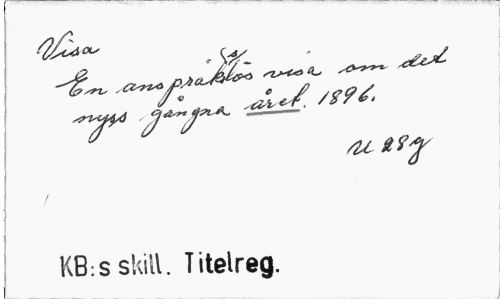 Visa
En anspråkslös visa om det
nyss gångna året. 1896.
U 28 g
KB:s skill. Titelreg.